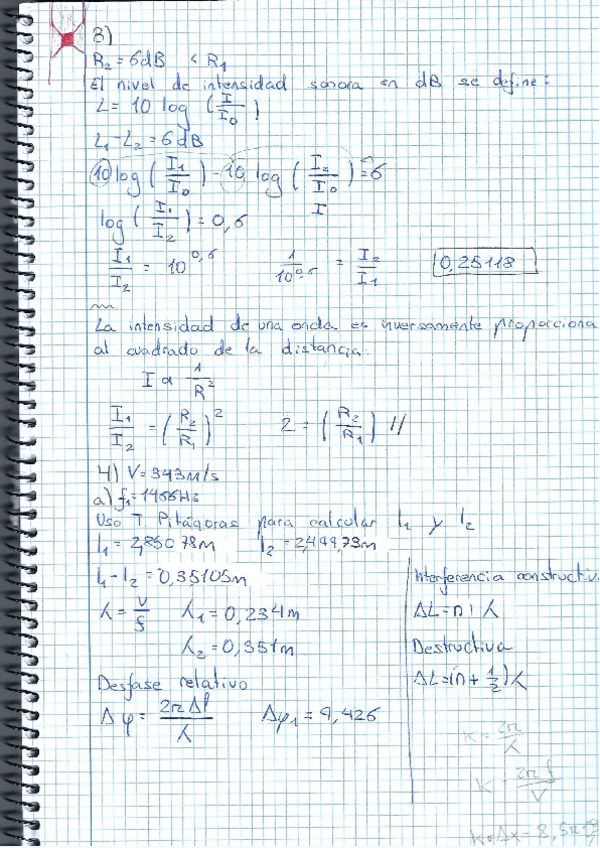 3)
R₂ = 6dB < R₁
El nivel de intensidad sonora en dB se define:
L = 10 log (I/I₀)
L₁ - L₂ = 6 dB
10 log (I₁/I₀) - 10 log (I₂/I₀) = 6
I
log (I₁/I₂) = 0,6
I₁/I₂ = 10^0,6    1/10^0,6 = I₂/I₁    0,25118
La intensidad de una onda es inversamente proporciona
al cuadrado de la distancia.
I ∝ 1/R²
I₁/I₂ = (R₂/R₁)²    2 = (R₂/R₁) //
4) V = 343 m/s
a) f₁ = 1466Hz
Uso T. Pitágoras para calcular l₁ y l₂
l₁ = 2,85078m    l₂ = 2,49973m
l₁ - l₂ = 0,35105m
λ = V/f    λ₁ = 0,234m
λ₂ = 0,351m
Desfase relativo
Δφ = 2π Δl/λ    Δφ₁ = 9,426
Interferencia constructiv
ΔL = n · λ
Destructiva
ΔL = (n + 1/2) λ
K = 2π/λ
K = 2π f/V